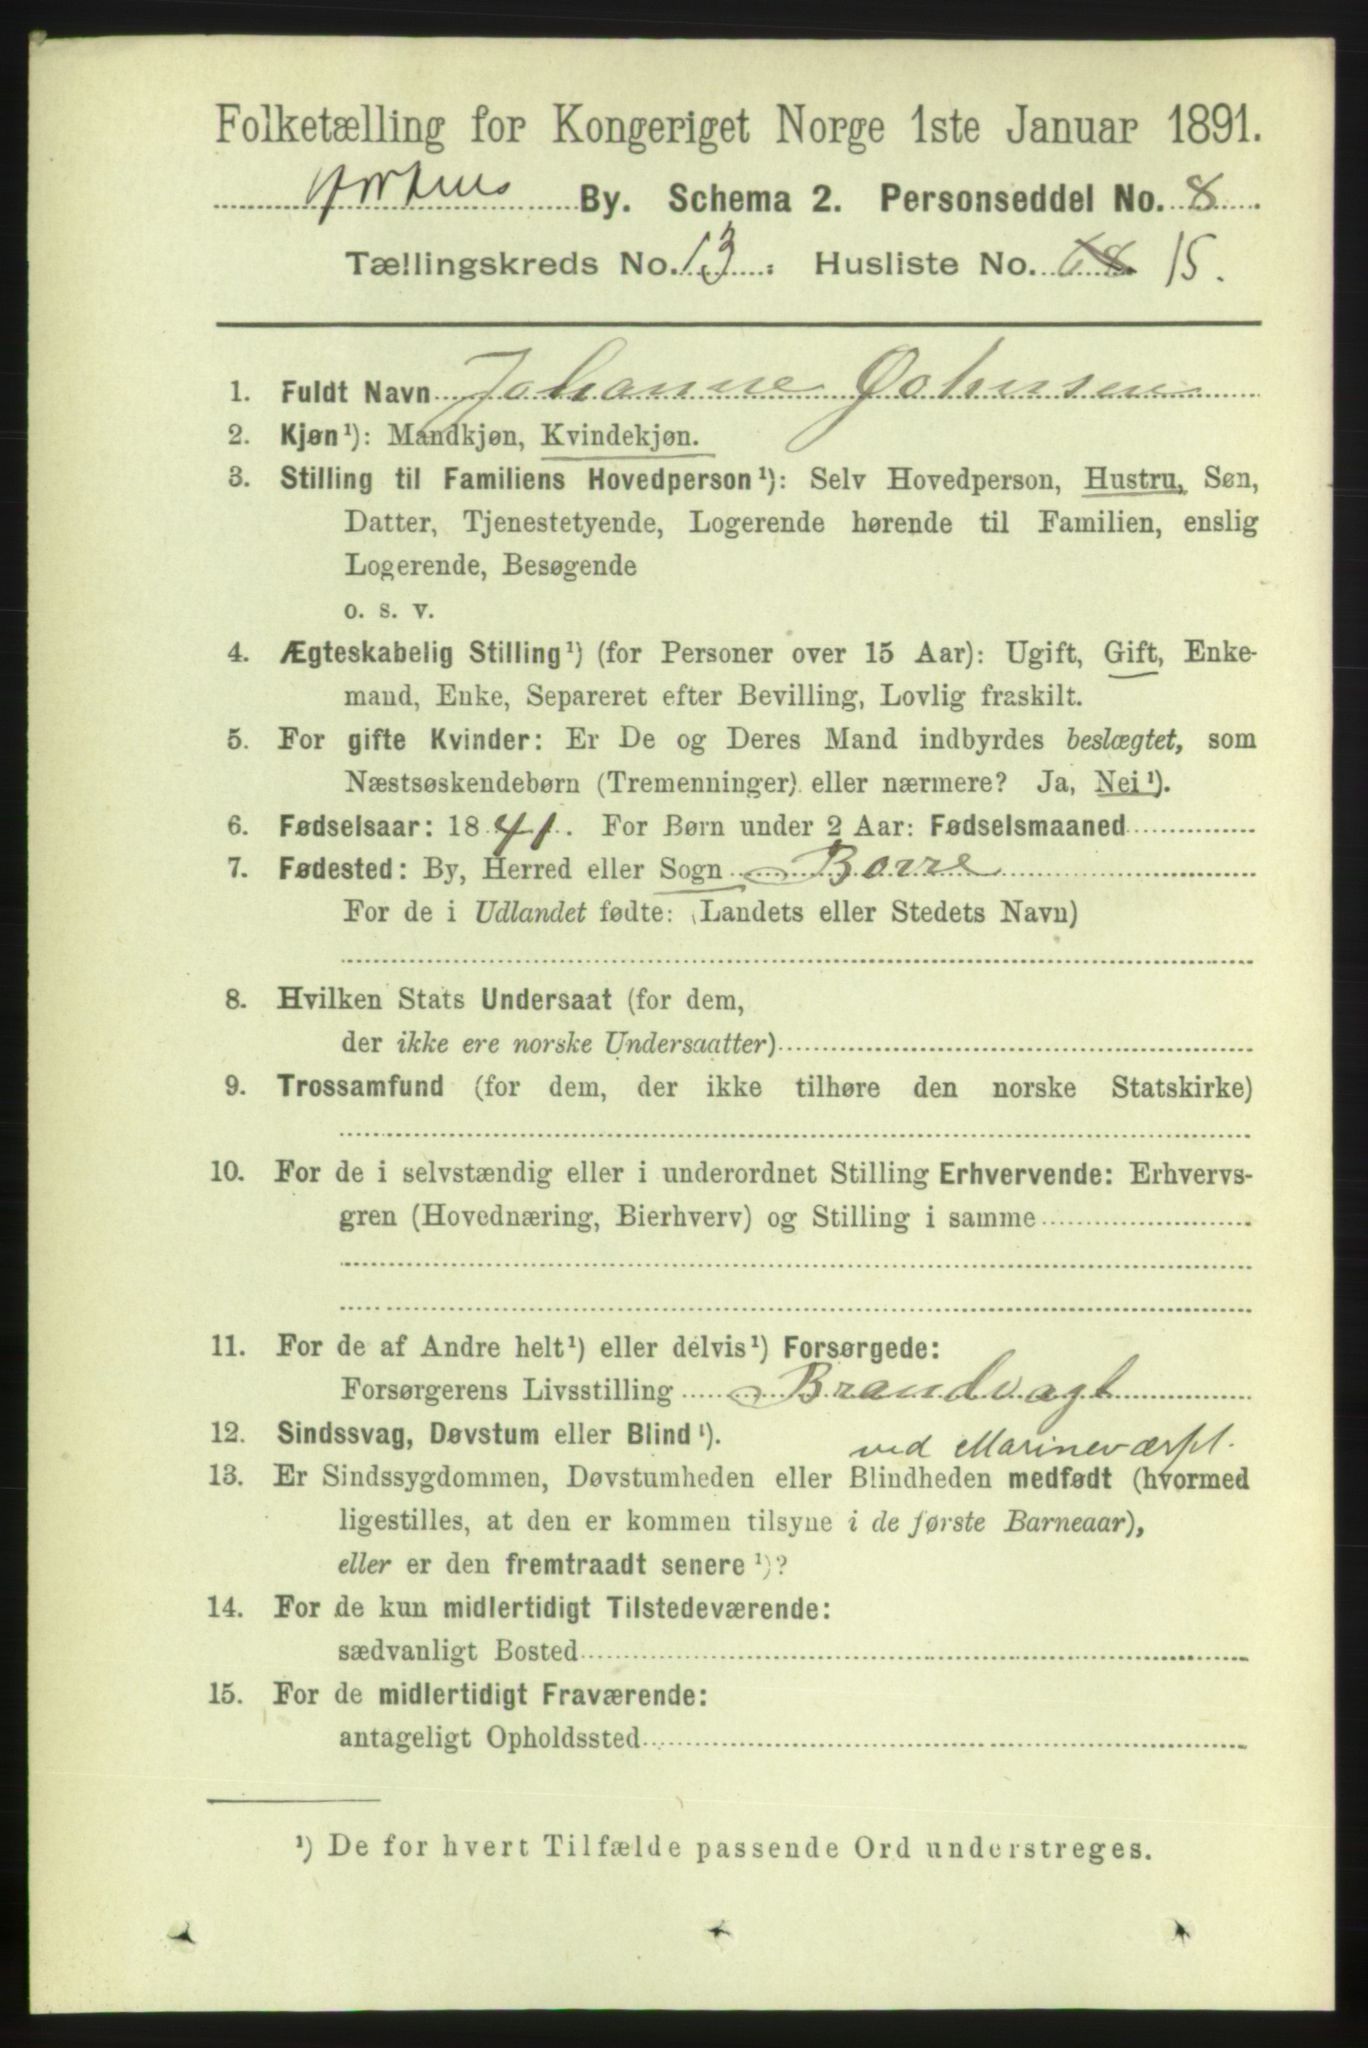 Folketælling for Kongeriget Norge 1ste Januar 1891.
Hortens By. Schema 2. Personseddel No. 8.
Tællingskreds No. 13. : Husliste No. 68 15.
1. Fuldt Navn Johanne Johnsen
2. Kjøn¹): Mandkjøn, Kvindekjøn.
3. Stilling til Familiens Hovedperson¹): Selv Hovedperson, Hustru, Søn,
Datter, Tjenestetyende, Logerende hørende til Familien, enslig
Logerende, Besøgende
o. s. v.
4. Ægteskabelig Stilling¹) (for Personer over 15 Aar): Ugift, Gift, Enke-
mand, Enke, Separeret efter Bevilling, Lovlig fraskilt.
5. For gifte Kvinder: Er De og Deres Mand indbyrdes beslægtet, som
Næstsøskendebørn (Tremenninger) eller nærmere? Ja, Nei¹).
6. Fødselsaar: 1841. For Børn under 2 Aar: Fødselsmaaned
7. Fødested: By, Herred eller Sogn Borre
For de i Udlandet fødte: (Landets eller Stedets Navn)
8. Hvilken Stats Undersaat (for dem,
der ikke ere norske Undersaatter)
9. Trossamfund (for dem, der ikke tilhøre den norske Statskirke)
10. For de i selvstændig eller i underordnet Stilling Erhvervende: Erhvervs-
gren (Hovednæring, Bierhverv) og Stilling i samme
11. For de af Andre helt¹) eller delvis¹) Forsørgede:
Forsørgerens Livsstilling Brandvagt
12. Sindssvag, Døvstum eller Blind¹). ved Marineværft.
13. Er Sindssygdommen, Døvstumheden eller Blindheden medfødt (hvormed
ligestilles, at den er kommen tilsyne i de første Barneaar),
eller er den fremtraadt senere¹)?
14. For de kun midlertidigt Tilstedeværende:
sædvanligt Bosted
15. For de midlertidigt Fraværende:
antageligt Opholdssted
¹) De for hvert Tilfælde passende Ord understreges.